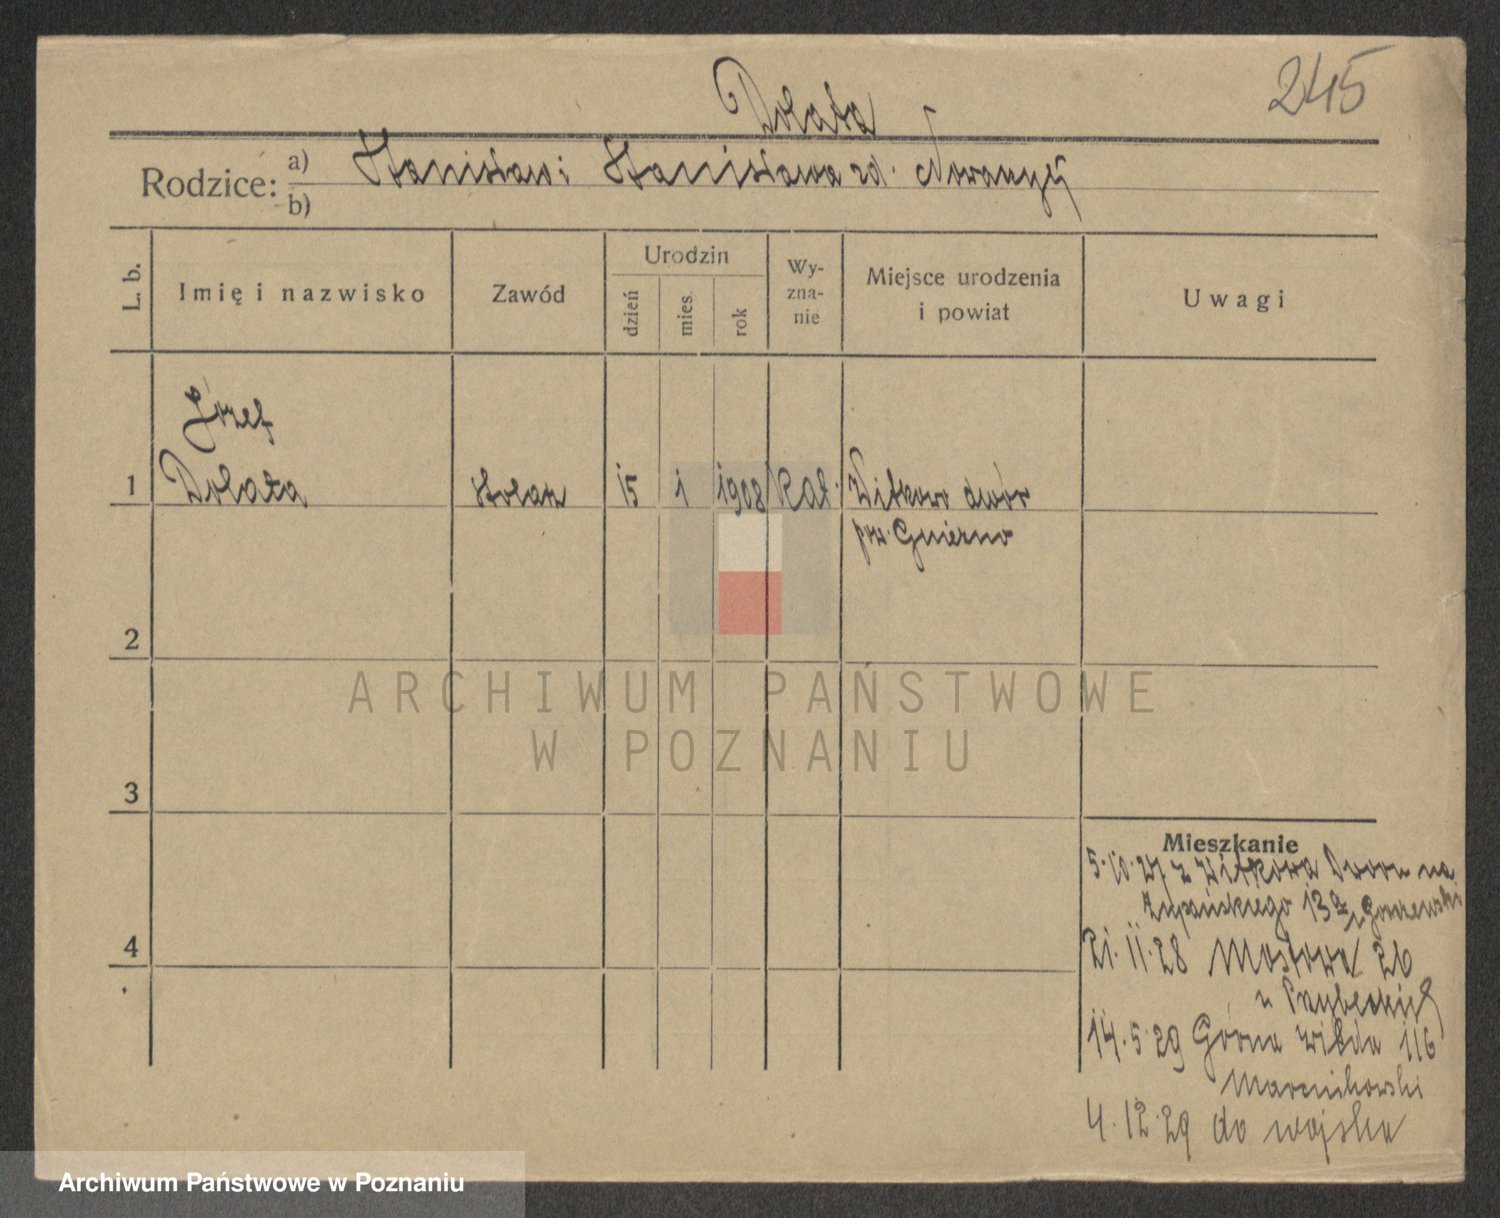 245
Dolata
Rodzice: a) Stanisław i Stanisława zd.
b)
L. b.
Imię i nazwisko
Zawód
Urodzin
dzień
mies.
rok
Wy-
zna-
nie
Miejsce urodzenia
i powiat
Uwagi
Józef
1 Dolata stolarz 15 1 1908 kat. Witkowo dwór
pow. Gniezno
2
3
4
ARCHIWUM PAŃSTWOWE
W POZNANIU
Mieszkanie
5.10.27 z Witkowa Dworu na
Żupańskiego 13
21.11.28 Mostowa 26
u
14.5.29 Górna Wilda 116
Marcinkowski
4.12.29 do wojska
Archiwum Państwowe w Poznaniu